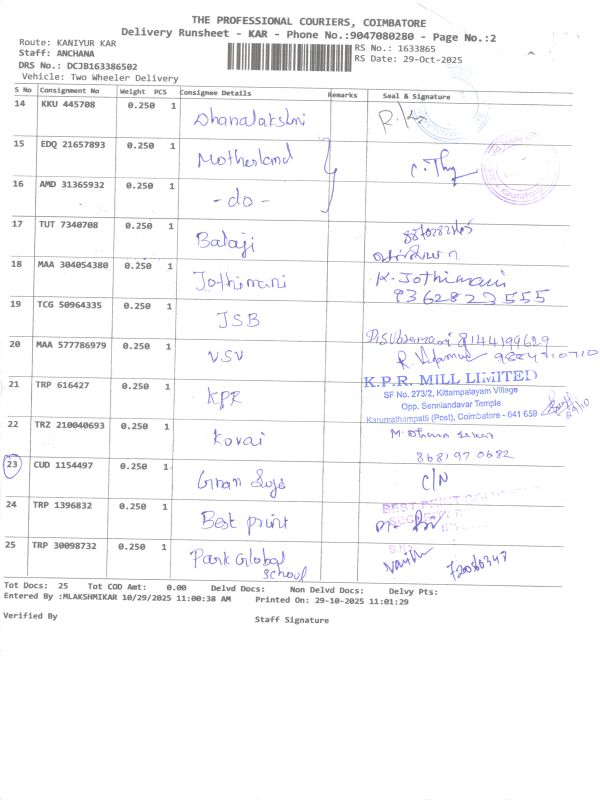 THE PROFESSIONAL COURIERS, COIMBATORE
Delivery Runsheet - KAR - Phone No.:9047080280 - Page No.:2
Route: KANIYUR KAR
RS No.: 1633865
Staff: ANCHANA
RS Date: 29-Oct-2025
DRS No.: DCJB163386502
Vehicle: Two Wheeler Delivery
S No Consignment No Weight PCS Consignee Details Remarks Seal & Signature
14 KKU 445708 0.250 1 Dhanalakshmi
15 EDQ 21657893 0.250 1 Motherland
16 AMD 31365932 0.250 1 -do-
17 TUT 7340708 0.250 1 Balaji
18 MAA 304054380 0.250 1 Jothimani K. Jothimani
9362823555
19 TCG 50964335 0.250 1 JSB 8144199629
20 MAA 577786979 0.250 1 VSV
21 TRP 616427 0.250 1 KPR K.P.R. MILL LIMITED
SF No. 273/2, Kittampalayam Village
Opp. Senniandavar Temple
Karumathampatti (Post), Coimbatore - 641 659
22 TRZ 210040693 0.250 1 Kovai
868197 0682
23 CUD 1154497 0.250 1 C/N
24 TRP 1396832 0.250 1 Best print BEST PRINT
25 TRP 30098732 0.250 1 Park Global
School
Tot Docs: 25 Tot COD Amt: 0.00 Delvd Docs: Non Delvd Docs: Delvy Pts:
Entered By :MLAKSHMIKAR 10/29/2025 11:00:38 AM Printed On: 29-10-2025 11:01:29
Verified By Staff Signature